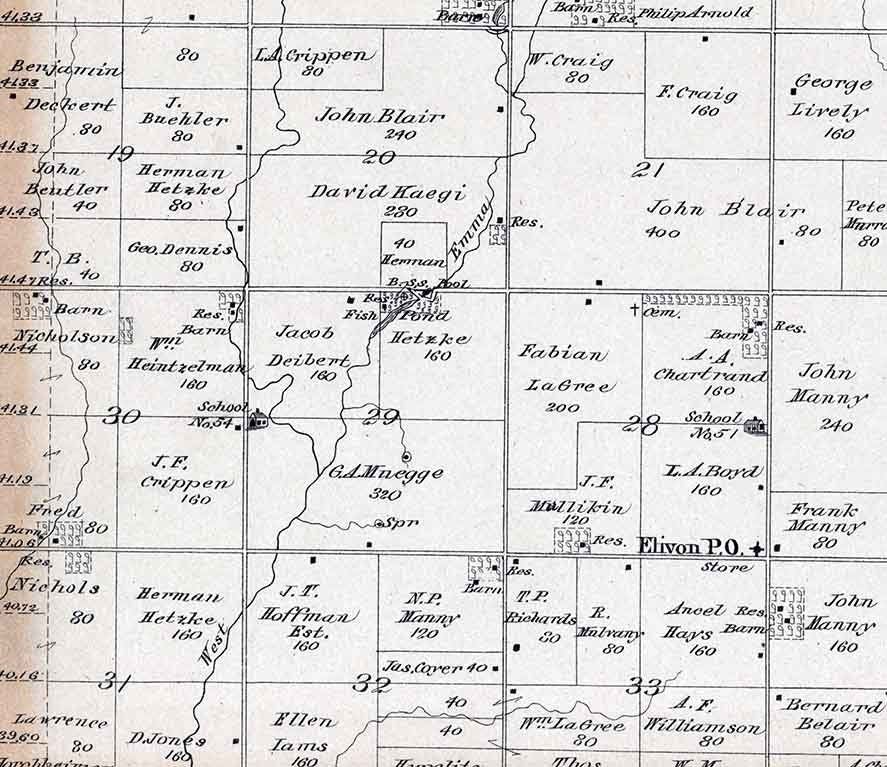 41.33
Barn
Barn
Res.
Philip Arnold
Benjamin
41.33
Deckert
80
80
J.
Buehler
80
L.A. Crippen
80
John Blair
240
W. Craig
80
F. Craig
160
George
Lively
160
41.37
19
20
21
John
Beutler
40
Herman
Hetzke
80
David Haegi
280
Emma
John Blair
400
80
Pete
Murra
80
41.43
Res.
T. B.
40
Geo. Dennis
80
40
Herman
41.47
Res.
Barn
Nicholson
80
41.44
Res.
Barn
Wm
Heintzelman
160
Res
Boss
Pool
Fish Pond
Jacob
Deibert
160
Hetzke
160
Fabian
LaGree
200
Cem.
Barn
Res.
A. A.
Chartrand
160
John
Manny
240
41.31
30
School
No. 54
29
28
School
No. 51
41.19
J. F.
Crippen
160
G. A. Mnegge
320
Spr
J. F.
Millikin
120
Res.
L. A. Boyd
160
Frank
Manny
80
Fred
Barn
80
41.06
Elivon P.O.
Store
Res.
Nichols
80
40.72
Herman
Hetzke
160
West
J. T.
Hoffman
Est.
160
Barn
N. P.
Manny
120
Res.
T. P.
Richards
80
R.
Mulvany
80
Ancel
Hays
160
Res.
Barn
John
Manny
160
40.16
31
32
33
Jas. Coyer 40
40
40
Lawrence
80
39.60
D. Jones
160
Ellen
Iams
160
Wm LaGree
80
A. F.
Williamson
80
Bernard
Belair
80
Thos
W. M.